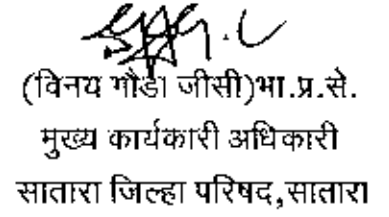 (विनय गौडा जीसी)भा.प्र.से.
मुख्य कार्यकारी अधिकारी
सातारा जिल्हा परिषद,सातारा